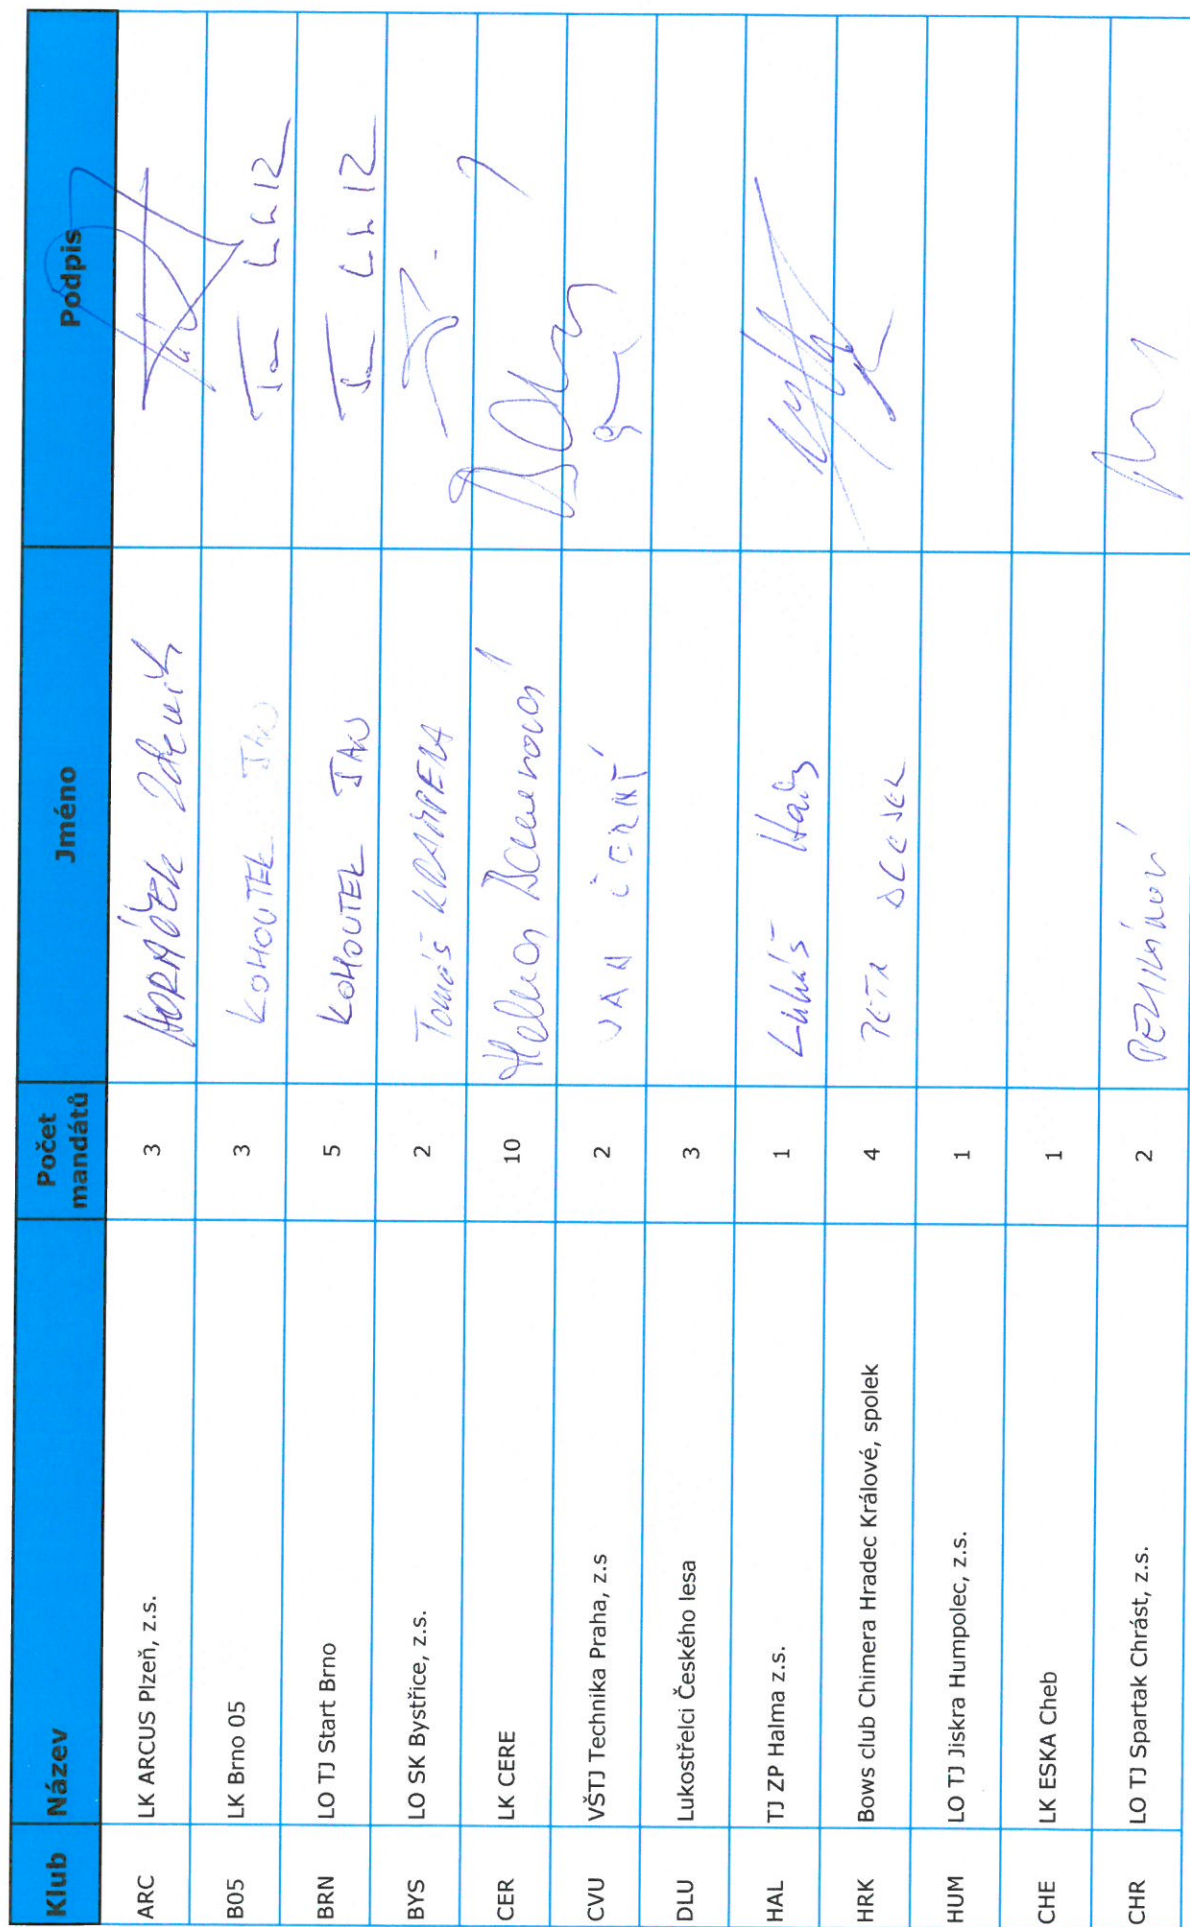 Klub Název Počet mandátů Jméno Podpis
ARC LK ARCUS Plzeň, z.s. 3 HORÁČEK Zdeněk
B05 LK Brno 05 3 KOHOUTEK JAN
BRN LO TJ Start Brno 5 KOHOUTEK JAN
BYS LO SK Bystřice, z.s. 2 Tomáš KRAMPERA
CER LK CERE 10
CVU VŠTJ Technika Praha, z.s 2 JAN ČERNÝ
DLU Lukostřelci Českého lesa 3
HAL TJ ZP Halma z.s. 1 Lukáš
HRK Bows club Chimera Hradec Králové, spolek 4 PETR
HUM LO TJ Jiskra Humpolec, z.s. 1
CHE LK ESKA Cheb 1
CHR LO TJ Spartak Chrást, z.s. 2